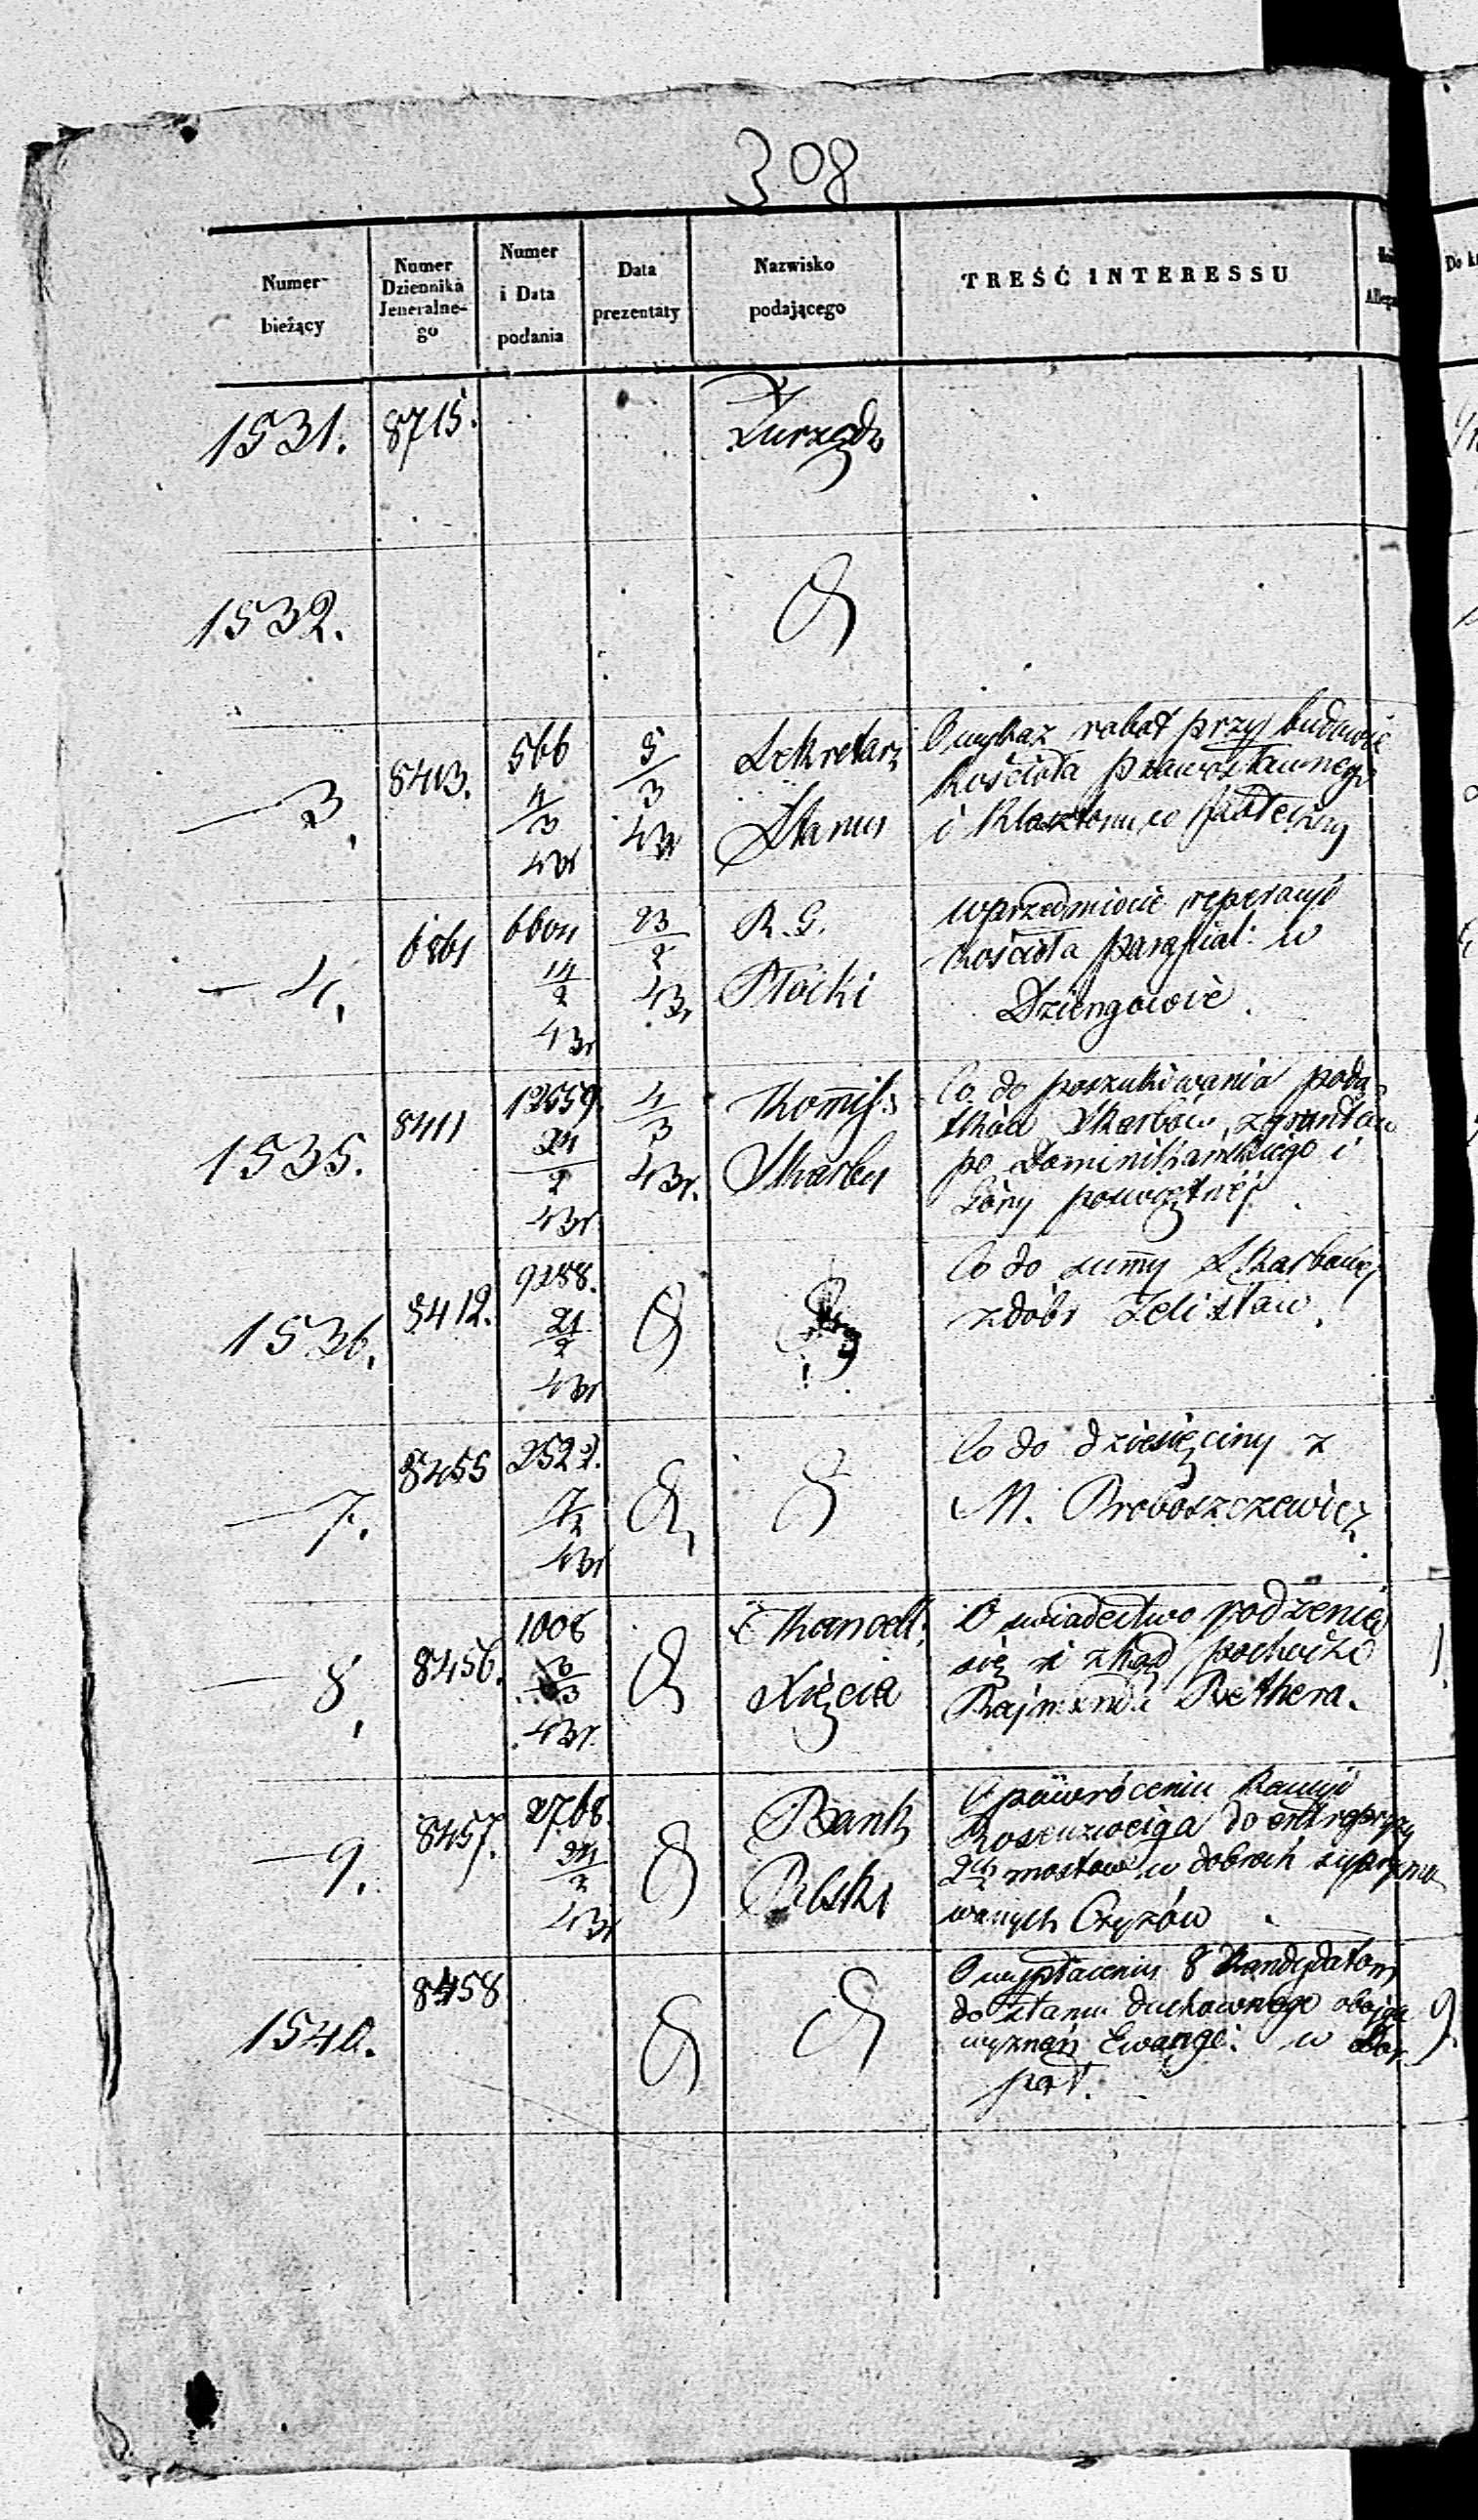 308
Numer bieżący
Numer Dziennika Jeneralne-go
Numer i Data podania
Data prezentaty
Nazwisko podającego
TREŚĆ INTERESSU
Do
1531. 8715. Zurzędu
1532.
3. 8403. 566 4/3 43r 5/3 43r
Sekretarz
Stanu
O wykaz robót przy budowie
Kościoła prawosławnego
i Klasztoru w
4. 6861 6604 14/2 43r 23/2 43r
R. G.
Płocki
w przedmiocie reperacyi
Kościoła parafial: w
Dziengowie.
1535. 8411 12559. 24/2 43r 4/3 43r.
Kommis:
Skarbu
Co do poszukiwania poda-
tków Skarbów. z gruntów
po Dominikańskiego i
Góry
1536. 8412. 9288. 21/2 43r
Co do summy Skarbowej
z dóbr Zelisław.
7. 8455 2522. 43r
Co do dziesięciny z
M. Proboszczewicz.
8. 8456. 1008 43r.
Kancell:
Xięcia
O świadectwo rodzenia
się i zkąd pochodzi
Rajmunda Rethera.
9. 8457. 2768. 24/2 43r
Bank
Polski
O powróceniu Kaucyi
Rosenzweiga do entrepryzy
2ch mostów w dobrach suprymo
wanych Czyżów
1540. 8458
O wypłaceniu 8 Kandydatom
do stanu duchownego obojga
wyznań Ewangi: w Dor
pat.